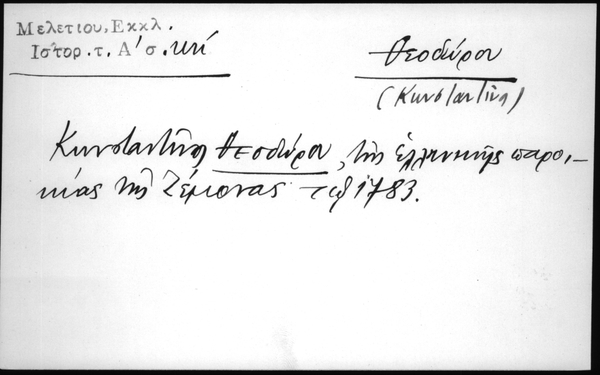 Μελετίου, Εκκλ.
Ιστορ. τ. Α' σ. κή
Θεοδώρου
(Κωνσταντίνος)
Κωνσταντίνος Θεοδώρου, της ελληνικής παροι-
κίας της Ζέμονας τω 1783.